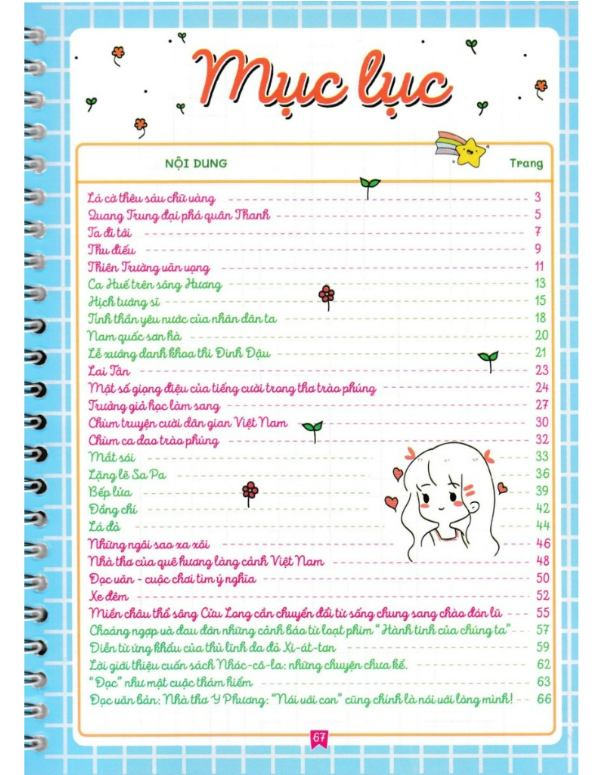 Mục lục
NỘI DUNG Trang
Lá cờ thêu sáu chữ vàng 3
Quang Trung đại phá quân Thanh 5
Ta đi tới 7
Thu điếu 9
Thiên Trường vãn vọng 11
Ca Huế trên sông Hương 13
Hịch tướng sĩ 15
Tinh thần yêu nước của nhân dân ta 18
Nam quốc sơn hà 20
Lễ xướng danh khoa thi Đinh Dậu 21
Lai Tân 23
Một số giọng điệu của tiếng cười trong thơ trào phúng 24
Trưởng giả học làm sang 27
Chùm truyện cười dân gian Việt Nam 30
Chùm ca dao trào phúng 32
Mắt sói 33
Lặng lẽ Sa Pa 36
Bếp lửa 39
Đồng chí 42
Lá đỏ 44
Những ngôi sao xa xôi 46
Nhà thơ của quê hương làng cảnh Việt Nam 48
Đọc văn - cuộc chơi tìm ý nghĩa 50
Xe đêm 52
Miền châu thổ sông Cửu Long cần chuyển đổi từ sống chung sang chào đón lũ 55
Choáng ngợp và đau đớn những cảnh báo từ loạt phim "Hành tinh của chúng ta" 57
Diễn từ ứng khẩu của thủ lĩnh da đỏ Xi-át-tơn 59
Lời giới thiệu cuốn sách Nhóc-cô-la: những chuyện chưa kể. 62
"Đọc" như một cuộc thám hiểm 63
Đọc văn bản: Nhà thơ Y Phương: "Nói với con" cũng chính là nói với lòng mình! 66
67